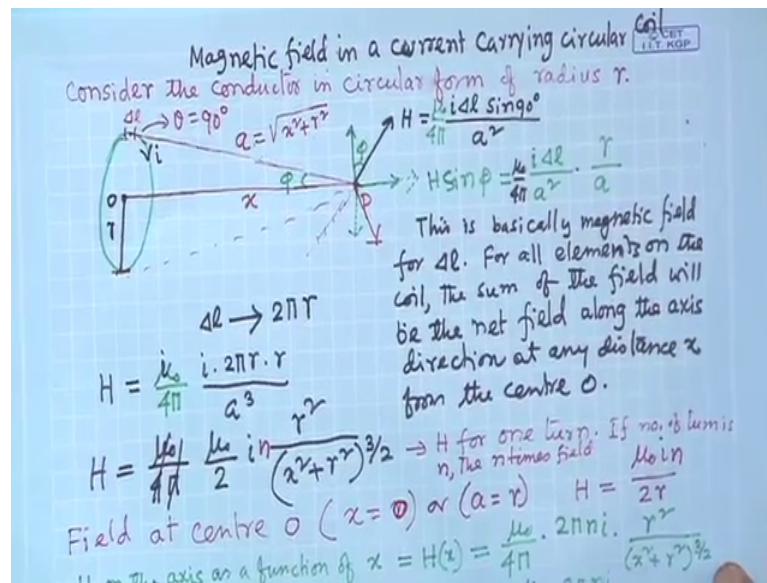 Magnetic field in a current Carrying circular coil
© CET
I.I.T. KGP
Consider the conductor in circular form of radius r.
Δl → θ = 90°
i
a = √(x² + r²)
H = μ₀/4π iΔl sin90°/a²
φ
φ
H sin φ = μ₀/4π iΔl/a² · r/a
O
x
P
r
This is basically magnetic field
for Δl. For all elements on the
coil, the sum of the field will
be the net field along the axis
direction at any distance x
from the centre O.
Δl → 2πr
H = μ₀/4π i·2πr·r/a³
H = μ₀/2 in r²/(x² + r²)^3/2 → H for one turn. If no. of turn is
n, the n times field
Field at centre O (x = 0) or (a = r) H = μ₀in/2r
the axis as a function of x = H(x) = μ₀/4π · 2πni · r²/(x² + r²)^3/2